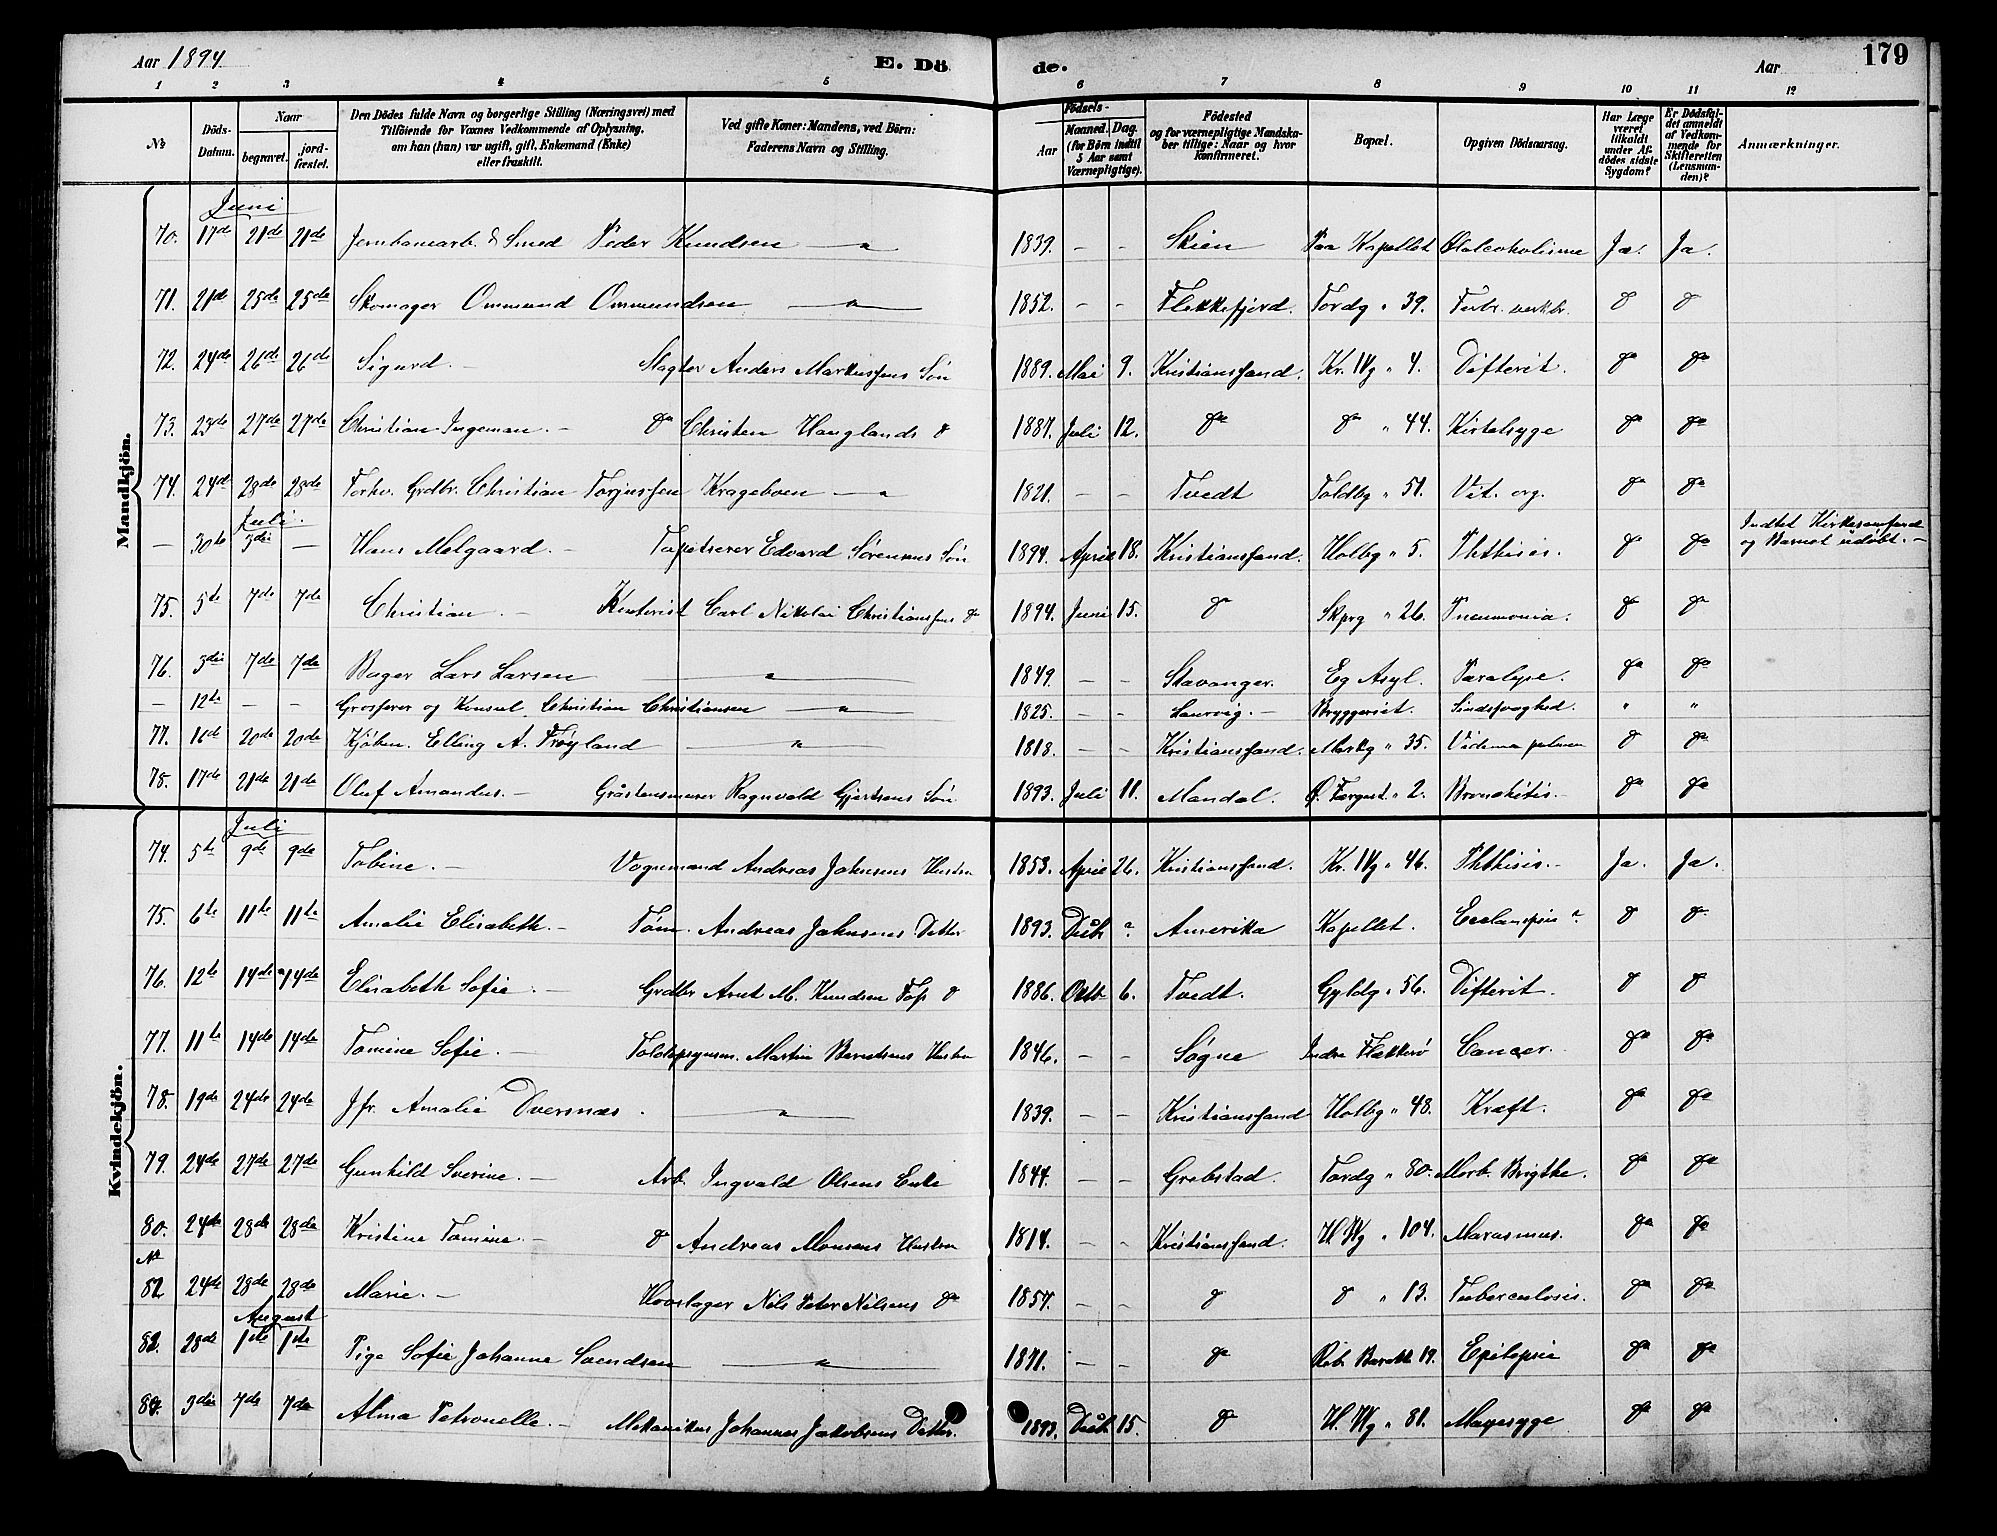 Aar 1894 E. Dö de. Aar 179
1 2 3 4 5 6 7 8 9 10 11 12
№ Döds-Datum. Naar begravet. jord-fæstet. Den Dödes fulde Navn og borgerlige Stilling (Næringsvei) med Tilföiende for Voxnes Vedkommende af Oplysning, om han (hun) var ugift, gift, Enkemand (Enke) eller fraskilt. Ved gifte Koner: Mandens, ved Börn: Faderens Navn og Stilling. Födsels- Aar Maaned. Dag. (for Börn indtil 5 Aar samt Værnepligtige). Födested og for værnepligtige Mandskaber tillige: Naar og hvor konfirmeret. Bopæl. Opgiven Dödsaarsag. Har Læge været tilkaldt under Afdödes sidste Sygdom? Er Dödsfaldet anmeldt af Vedkommende for Skifteretten (Lensmanden)? Anmærkninger.
Mandkjön.
Juni
70. 17de 21de 21de Jernbanearb. & Smed Peder Knudsen — " 1839. – – Skien Paa Kapellet Alcoholisme Ja. Ja.
71. 21de 25de 25de Skomager Ommund Ommundsen — " — 1852. – – Flekkefjord. Tordg " 39. do do
72. 24de 26de 26de Sigurd. – Slagter Anders Markussens Søn 1889. Mai 9. Kristianssand. Kr. IVg " 4. Difterit. do do
73. 23de 27de 27de Christian Ingeman. – do Christen Hauglands do 1887. Juli 12. do do " 44. Kirtelsyge do do
74. 24de 28de 28de Forhv. Grdbr. Christian Torjussen Krageboen — " 1821. – – Tvedt Toldbg " 51. Vit. org. do do
Juli.
– 30te 3die – Hans Mølgaard. – Tapetserer Edvard Sørensens Søn 1894. April 18. Kristianssand. Holbg " 5. Phthisis. do do Indtet Kirkesamfund og Barnet udøbt. –
75. 5te 7de 7de Christian. – Carl Nikolai Christianssens do 1894. Juni 15. do Skprg " 26. Pneumonia. do do
76. 3die 7de 7de Bager Lars Larsen — " — 1849. – – Stavanger. Eg Asyl. Paralyse. do do
– 12te – – Grosserer og Konsul Christian Christiansen — " — 1825. – – Laurvig. – Bryggeriet. Sindssvaghed. " "
77. 16de 20de 20de Kjøbm. Elling A. Frøyland — " — 1818. – – Kristianssand. Markg " 35. do do
78. 17de 21de 21de Oluf Amandus. – Gråstensmurer Ragnvald Gjertsens Søn 1893. Juli 11. Mandal. Ø. " 2. Bronchitis. do do
Kvindekjön.
Juli
74. 5te 9de 9de Tobine. – Vognmand Andreas Johnsens Hustru 1853. April 26. Kristianssand. Kr. IVg " 46. Phthisis. – Ja. Ja.
75. 6te 11te 11te Amalie Elisabeth. – Tøm. Andreas Johnsens Datter 1893. ? Amerika Kapellet. Eclampsie ? do do
76. 12te 14de 14de Elisabeth Sofie. – Grdbr Arnt M. Knudsen do 1886. Octb 6. Tvedt. Gyldg " 56. Difterit. do do
77. 11te 14de 14de Tomine Sofie. – Toldopsynsm. Martin Berntsens Hustru 1846. – – Søgne Indre Flekkerø Cancer. do do
78. 19de 24de 24de Jfr. Amalie Dversnæs. — " — 1839. – – Kristianssand Holbg " 48. Kræft. do do
79. 24de 27de 27de Gunhild Sverine. – Arb. Ingvald Olsens Enke 1844. – – Grebstad. Tordg " 80. Morb. Brigthe. do do
80. 24de 28de 28de Kristine Tomine. – do Andreas Monsens Hustru 1814. – – Kristianssand. " 104. Marasmus. do do
№
81 24de 28de 28de Marie. – Hovslager Nils Peter Nilsens do 1857. – – do do " 13. Tuberculosis. do do
August
82. 28de 1ste 1ste Pige Sofie Johanne Svendsen — " — 1871. – – do Rob. 19. Epilepsie do do
83. 3die 7de 7de Alma Petronelle. – Mekanikus Johannes Jakobsens Datter. 1893. 15. do " 81. Mavesyge do do